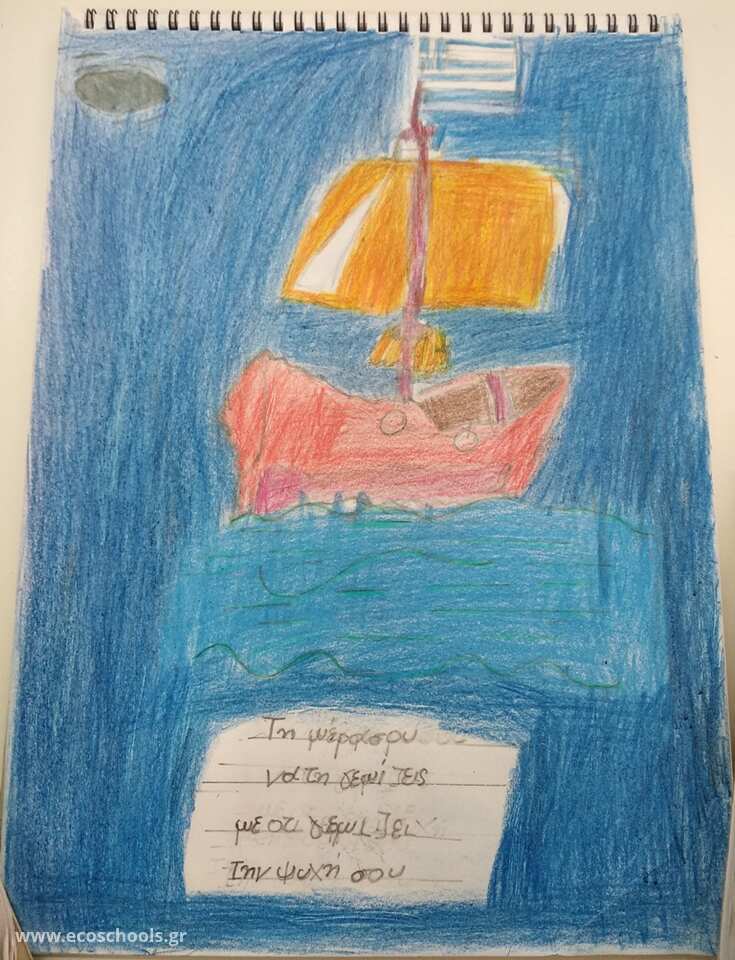 Τη μέρα σου
να τη γεμίζεις
με ότι γεμίζει
την ψυχή σου
www.ecoschools.gr